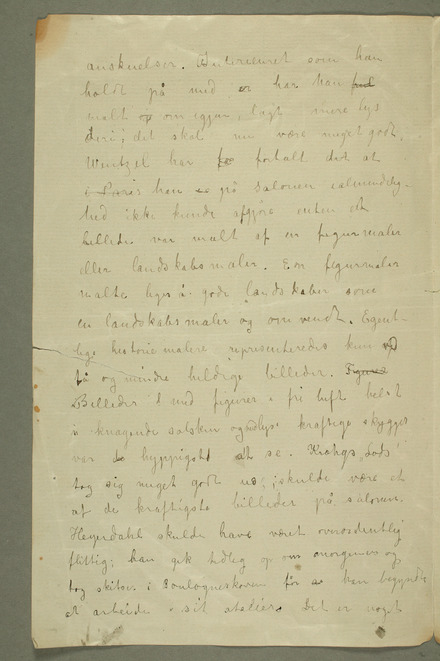 anskuelser. Interieuret som han
holdt på med er har han
malt op om igjen, lagt mere lys
deri; det skal nu være meget godt.
Wentzel har fortalt det at
i Paris han på salonen i almindelig-
hed ikke kunde afgjøre enten et
billede var malt af en figurmaler
eller landskabsmaler. En figurmaler
malte ligeså gode landskaber som
en landskabsmaler og omvendt. Egent-
lige historiemalere representeredes kun ved
få og mindre heldige billeder. Figure
Billeder med figurer i fri luft helst
i knagende solskin og kraftige skygger
var hyppigst at se. Krohgs „Lods"
tog sig meget godt ud; skulde være et
af de kraftigste billeder på salonen.
Heyerdahl skulde have været overordentlig
flittig; han gik tidlig op om morgenen og
tog skitser i Boulogneskoven før han begyndte
at arbeide i sit atelier. Det er noget